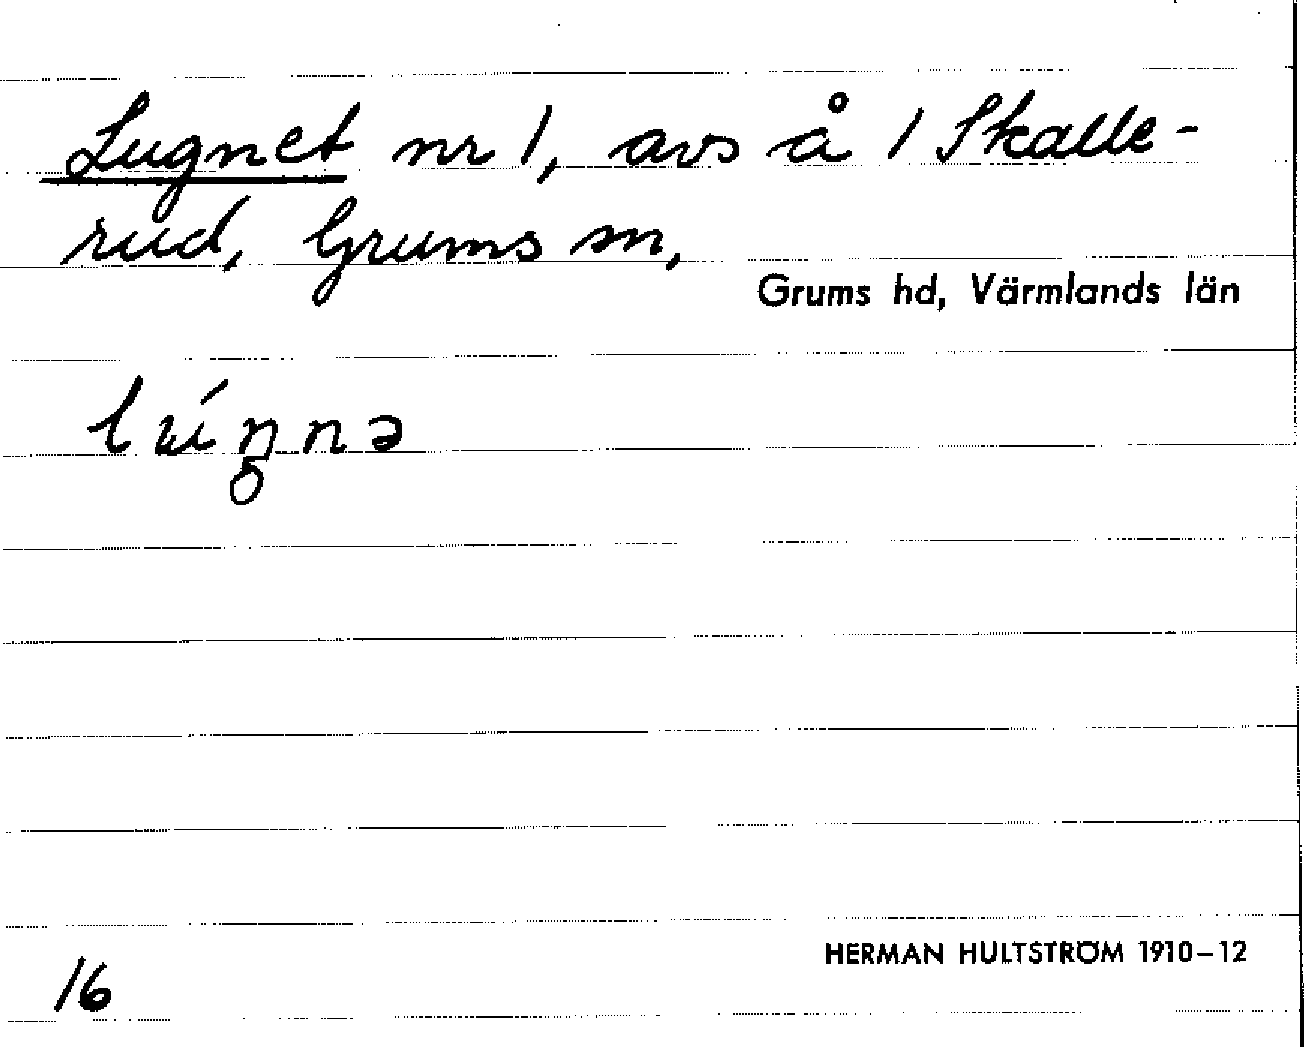 Lugnet nr 1, avs å 1 Skalle-
rud, Grums sn,
Grums hd, Värmlands län
lúŋnə
HERMAN HULTSTRÖM 1910–12
16